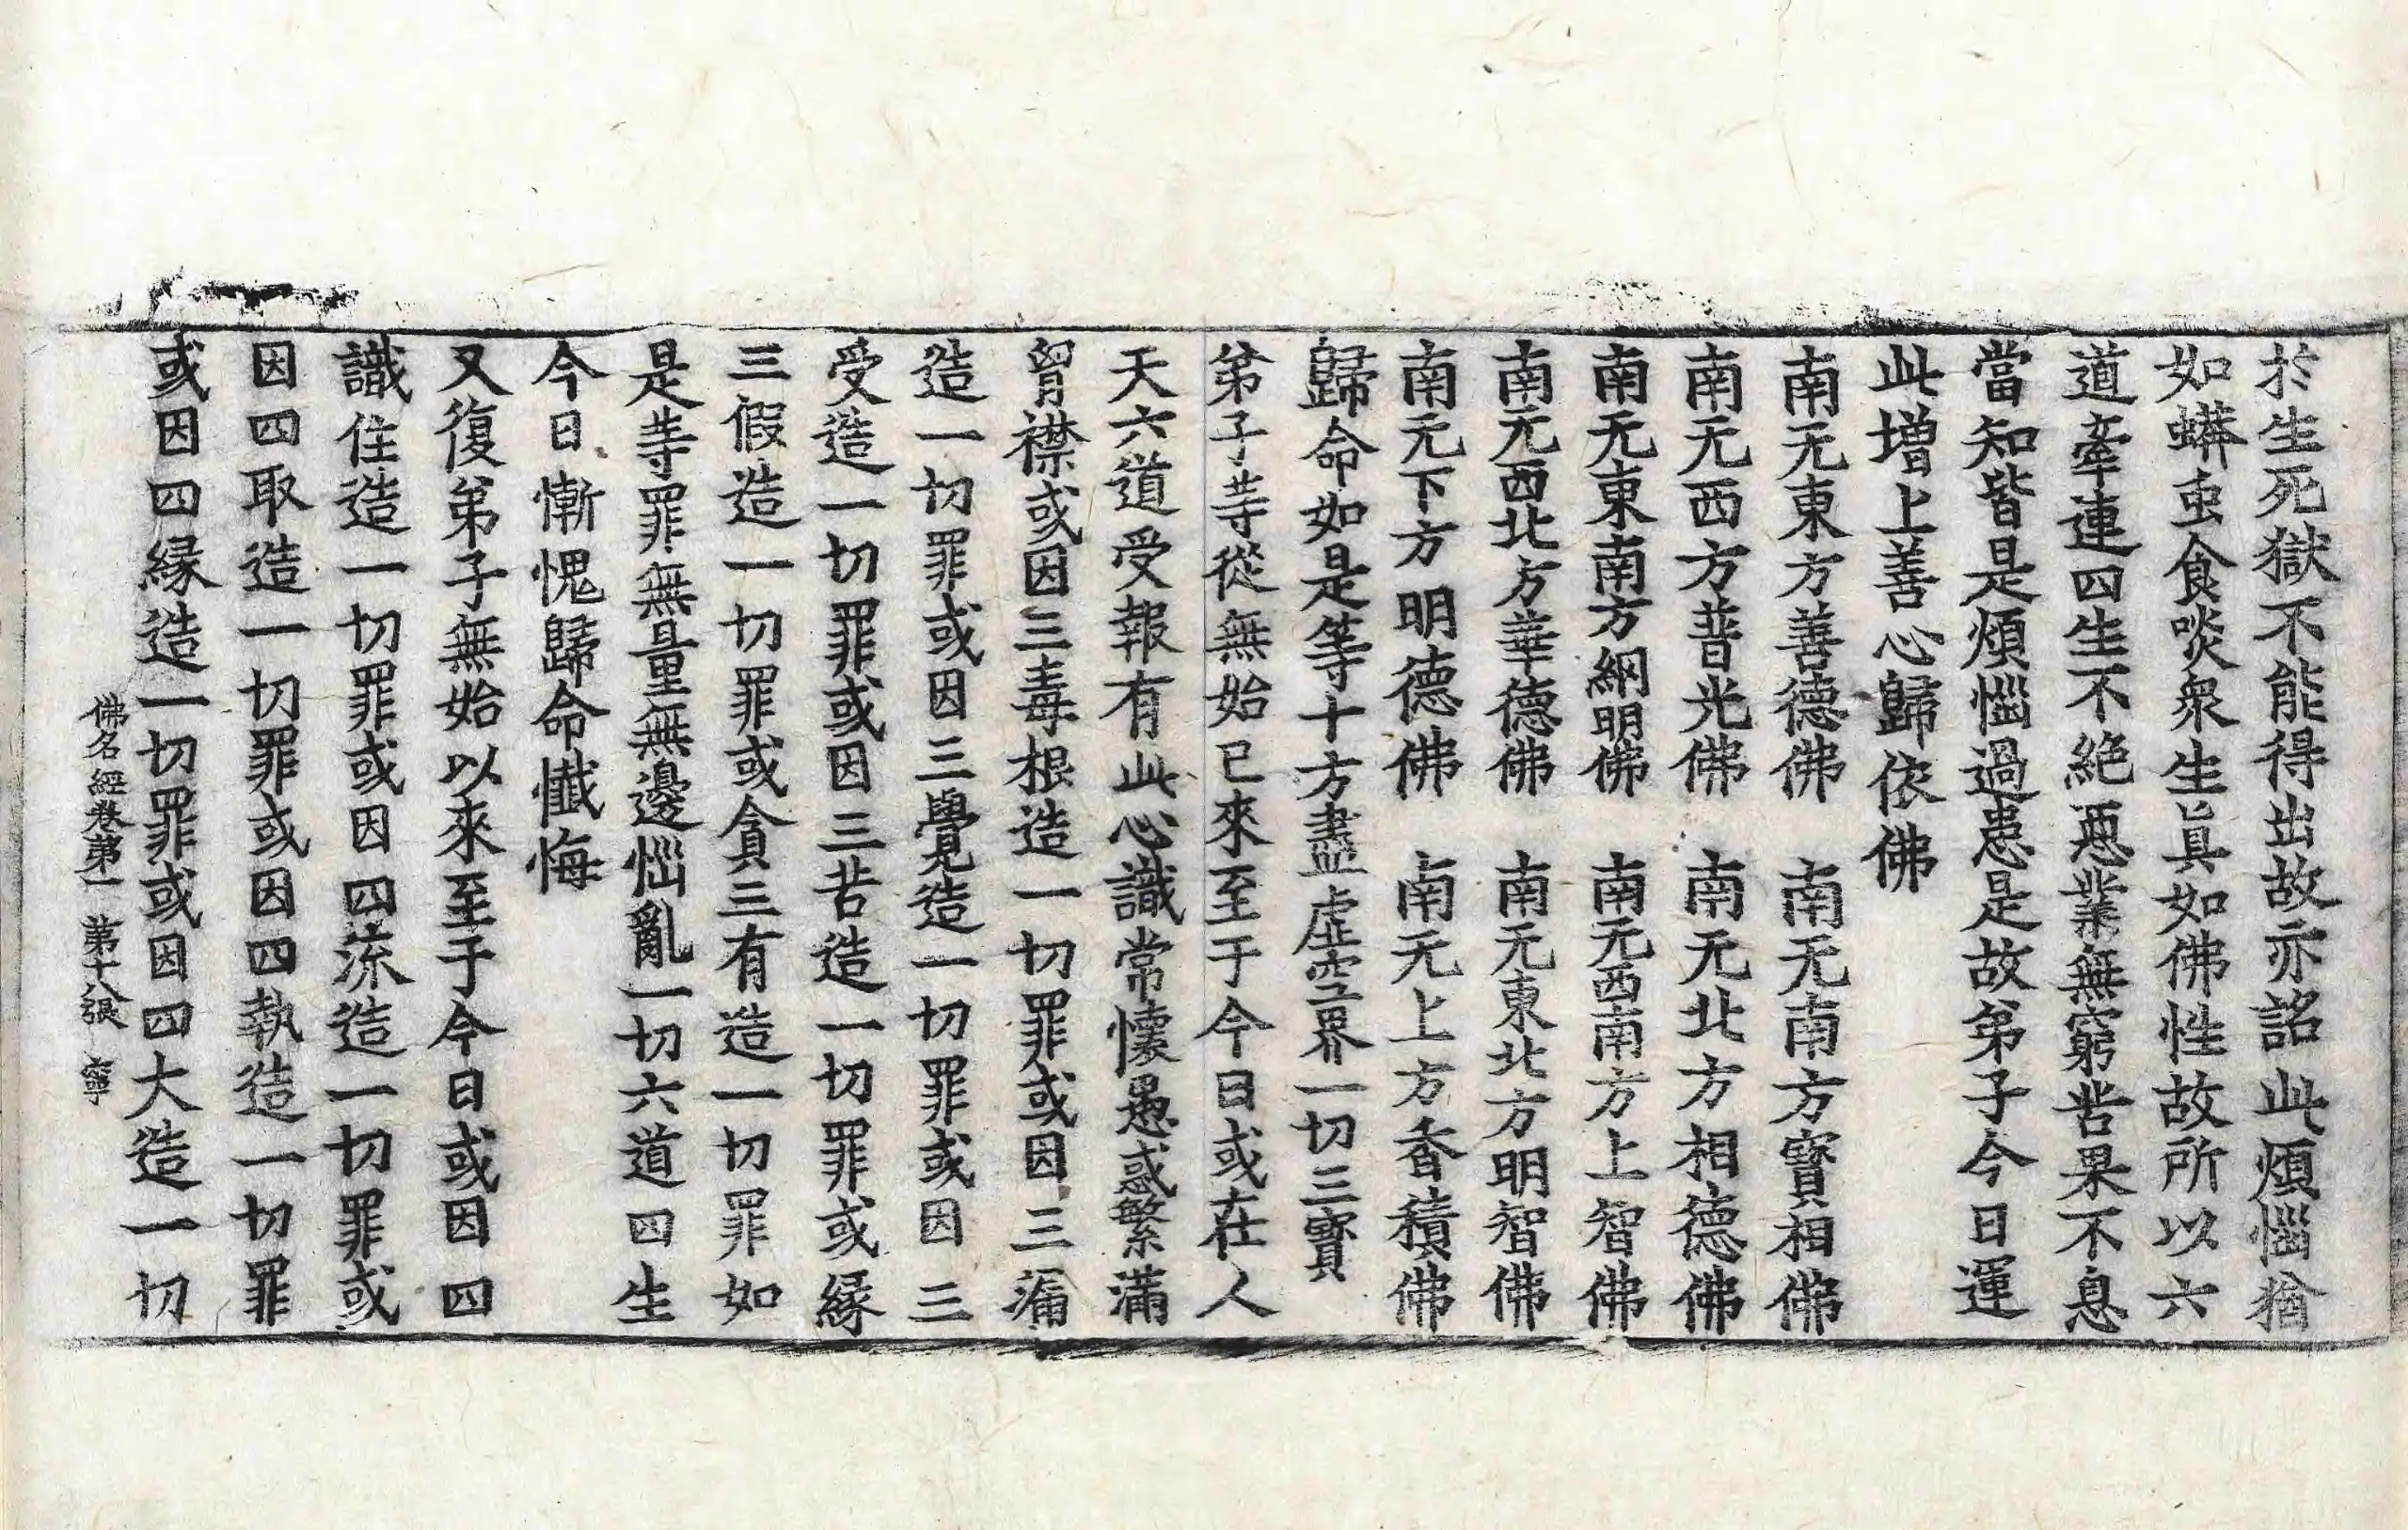 於生死獄不能得出故亦詺此煩惱猶
如蟒虫食啖衆生旨真如佛性故所以六
道牽連四生不絶惡業無窮苦果不息
當知皆是煩惱過患是故弟子今日運
此增上善心歸依佛
南无東方善德佛　南无南方寶相佛
南无西方普光佛　南无北方相德佛
南无東南方網明佛　南无西南方上智佛
南无西北方華德佛　南无東北方明智佛
南无下方明德佛　南无上方香積佛
歸命如是等十方盡虛空界一切三寶
弟子等從無始已來至于今日或在人
天六道受報有此心識常懷愚惑繁滿
胷襟或因三毒根造一切罪或因三漏
造一切罪或因三覺造一切罪或因三
受造一切罪或因三苦造一切罪或緣
三假造一切罪或貪三有造一切罪如
是等罪無量無邊惱亂一切六道四生
今日慚愧歸命懺悔
又復弟子無始以來至于今日或因四
識住造一切罪或因四流造一切罪或
因四取造一切罪或因四執造一切罪
或因四緣造一切罪或因四大造一切
佛名經卷第一　第十八張　寧